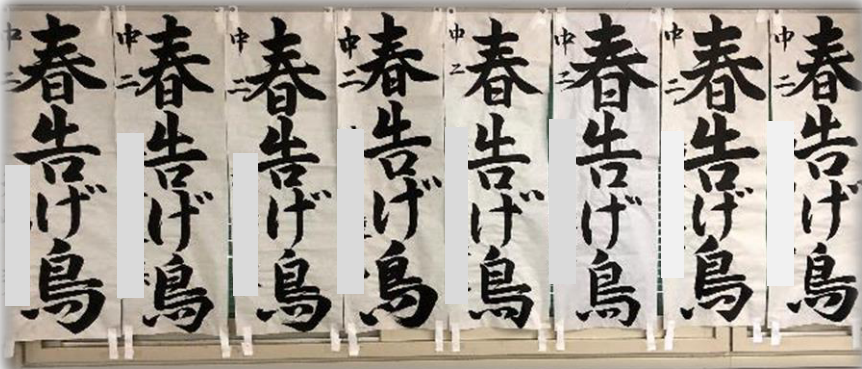 春告げ鳥
中二
春告げ鳥
中二
春告げ鳥
中二
春告げ鳥
中二
春告げ鳥
中二
春告げ鳥
中二
春告げ鳥
中二
春告げ鳥
中二